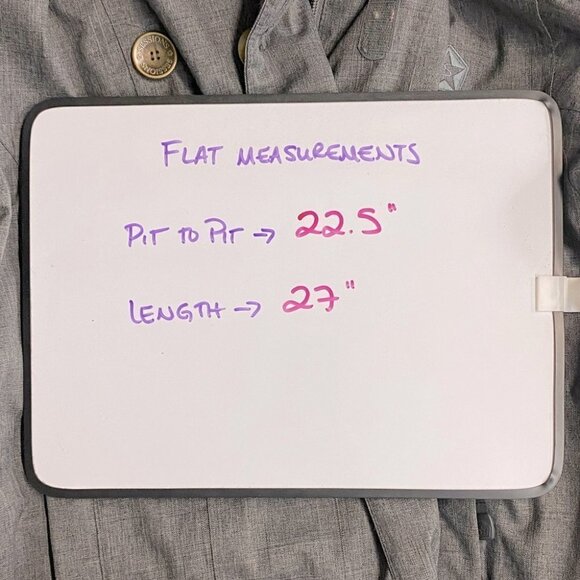 FLAT MEASUREMENTS
PIT TO PIT → 22.5"
LENGTH → 27"